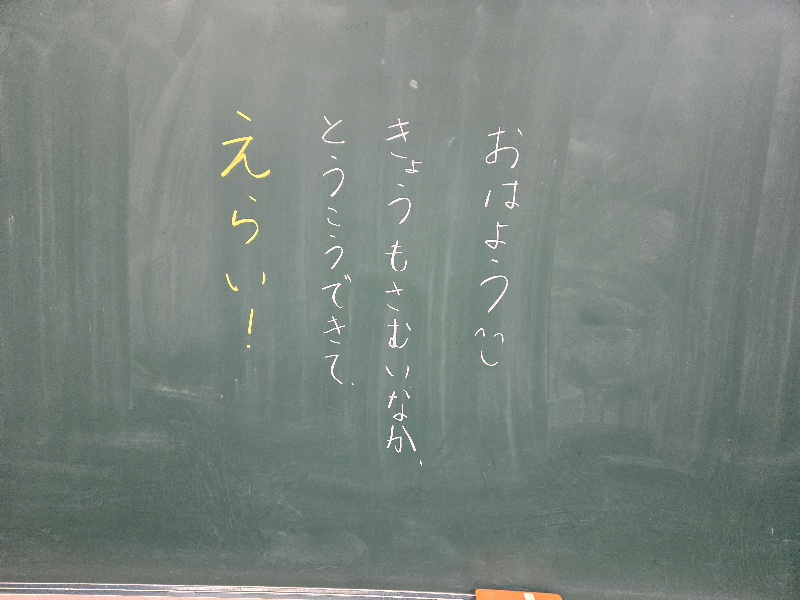 おはよう^^
きょうもさむいなか、
とうこうできて、
えらい!